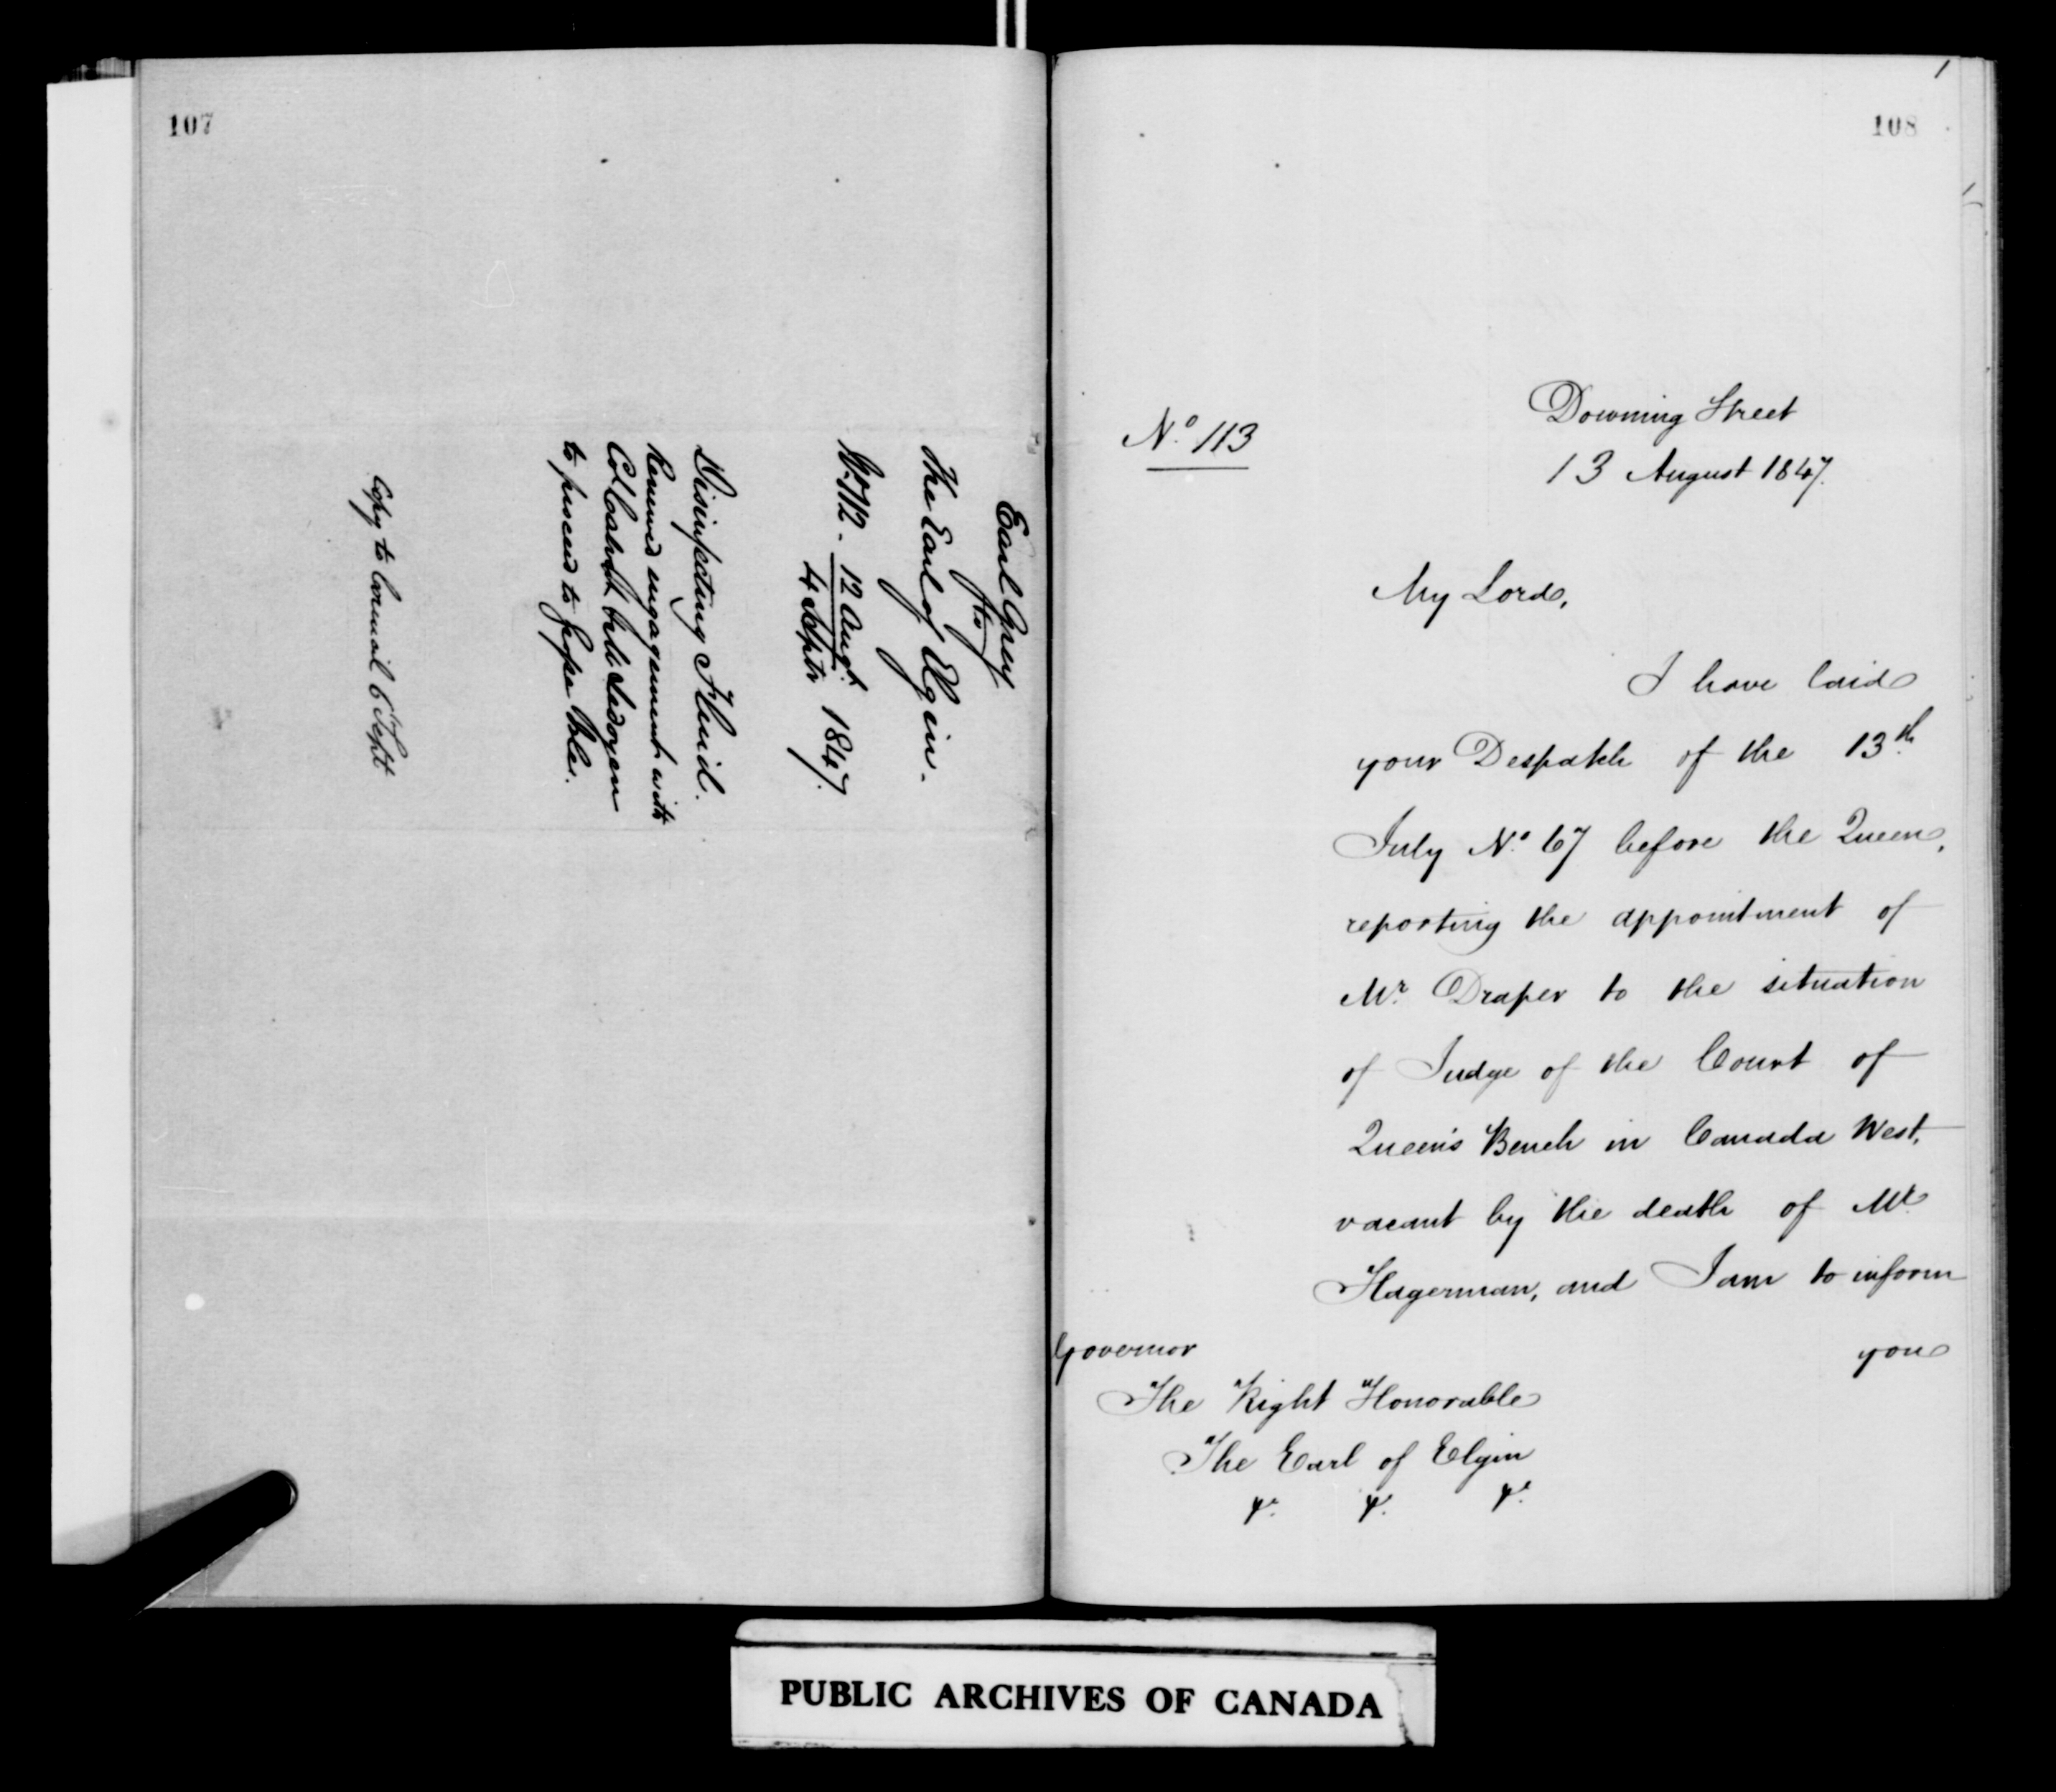 107
Earl Grey
to
The Earl of Elgin.
No. 112. 12 Augt. 1847.
4 Septr
Disinfecting Fluid.
Renewed engagement with
Col Calvert & Mr Ledoyen
to proceed to Grosse Isle.
Copy to Council 6 Sept
108
No. 113
Downing Street
13 August 1847.
My Lord,
I have laid
your Despatch of the 13th.
July No. 67 before the Queen,
reporting the appointment of
Mr. Draper to the situation
of Judge of the Court of
Queen's Bench in Canada West,
vacant by the death of Mr.
Hagerman, and I am to inform
you
Governor
The Right Honorable
The Earl of Elgin
&c. &c. &c.
PUBLIC ARCHIVES OF CANADA